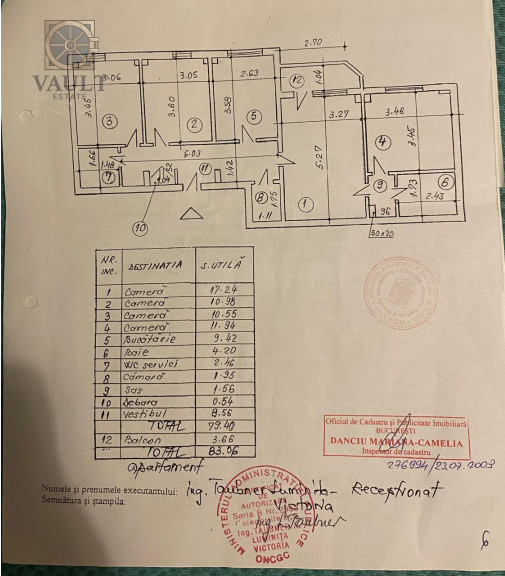 VAULT
ESTATE
2.70
3.06
3.05
2.63
12
1.04
3.27
3.46
3.45
3
3.60
2
3.59
5
4
3.45
5.27
6.03
1.66
1.48
7
1.04
1.52
11
1.42
8
1.75
1.11
1
9
1.73
6
2.43
96
50x20
10
NR. INC. DESTINATIA S. UTILĂ
1 Cameră 17.24
2 Cameră 10.98
3 Cameră 10.55
4 Cameră 11.94
5 Bucătărie 9.42
6 Baie 4.20
7 WC servici 2.46
8 Cămară 1.95
9 Sas 1.56
10 Debara 0.54
11 Vestibul 8.56
TOTAL 79.40
12 Balcon 3.66
TOTAL 83.06
apartament
Oficiul de Cadastru și Publicitate Imobiliară
BUCUREȘTI
DANCIU MARIANA-CAMELIA
Inspector de cadastru
276994/23.07.2009
Numele și prenumele executantului: ing. Taubner Luminita-Victoria Receptionat
Semnătura și ștampila:
ing. Taubner
MINISTERUL ADMINISTRAȚIEI
DE
AUTORIZA
Seria B Nr.
Ing. TAUBNER
LUMINIȚA
VICTORIA
ONCGC
6